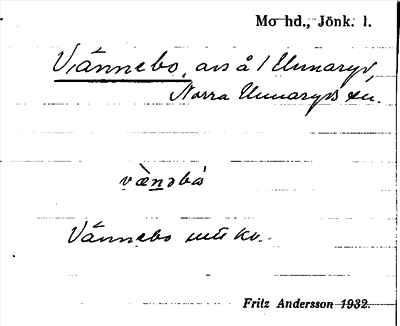 Mo hd., Jönk. l.
Vännebo, avs å 1 Unnaryd,
Norra Unnaryds sn.
vä̀nəbó
Vännebo
Fritz Andersson 1932.